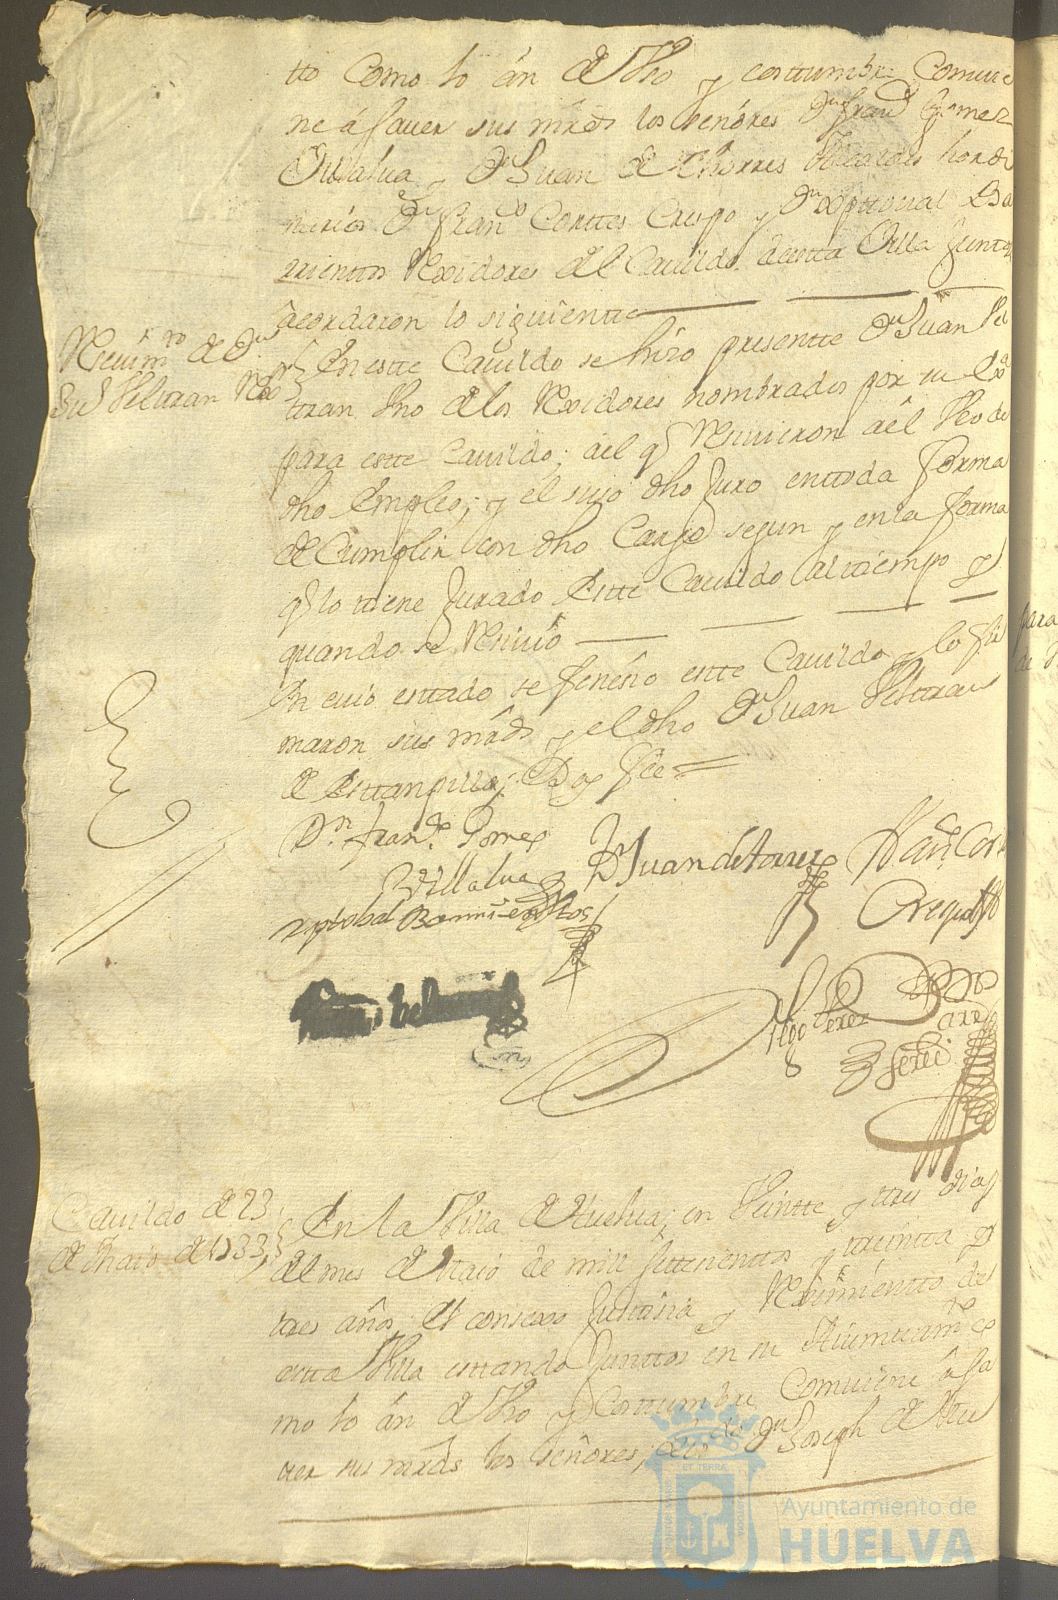 tto Como lo án de Vso y costtumbre Comvie
ne á sauer sus mrds los señores Dn Franco Gomez
Villalua y Dn Juan de thorres Alcaldes hordi
narios Dn Franco Corttes Crespo y Dn Xpttoual Ba
rrienttos Rexidores del Cauildo desta Villa Junttos
acordaron lo siguientte
Reciuimto de Dn
Jun Veltran Rexor
En estte Cauildo se hizo presentte Dn Juan Vel
ttran Vno de los Rexidores nombrados por su Exa
para estte Cauildo; ael qe Reciuieron ael Vso de
dho Empleo; y el suso dho Juro en ttoda forma
de Cumplir con dho Cargo segun y en la forma
qe lo ttiene Jurado Estte Cauildo al ttiempo y
quando se Reciuio
En cuio esttado se feneçio estte Cauildo y lo fir
maron sus mrds y el dho Dn Juan Velttran
de Esttanpilla; Doy fee =
Dn Franco Gomez
Villalua
Dn Juan de torres
Franco Cortes
Crespo
xptobal Barrientos
Juan beltran
Diego Perez
Cauildo de 23
de Maio de 1733
En la Villa de Huelua; en Veintte y tres dias
del mes de Maio de mill settecienttos y ttreinta y
ttres años El conséxo Justtisia y Reximientto de
estta Villa esttando Junttos en su Aiunttamto co
mo lo án de Vso y Costtumbre Comviene â sa
uer sus mrds los señores, Dn Joseph de
Ayuntamiento de
HUELVA